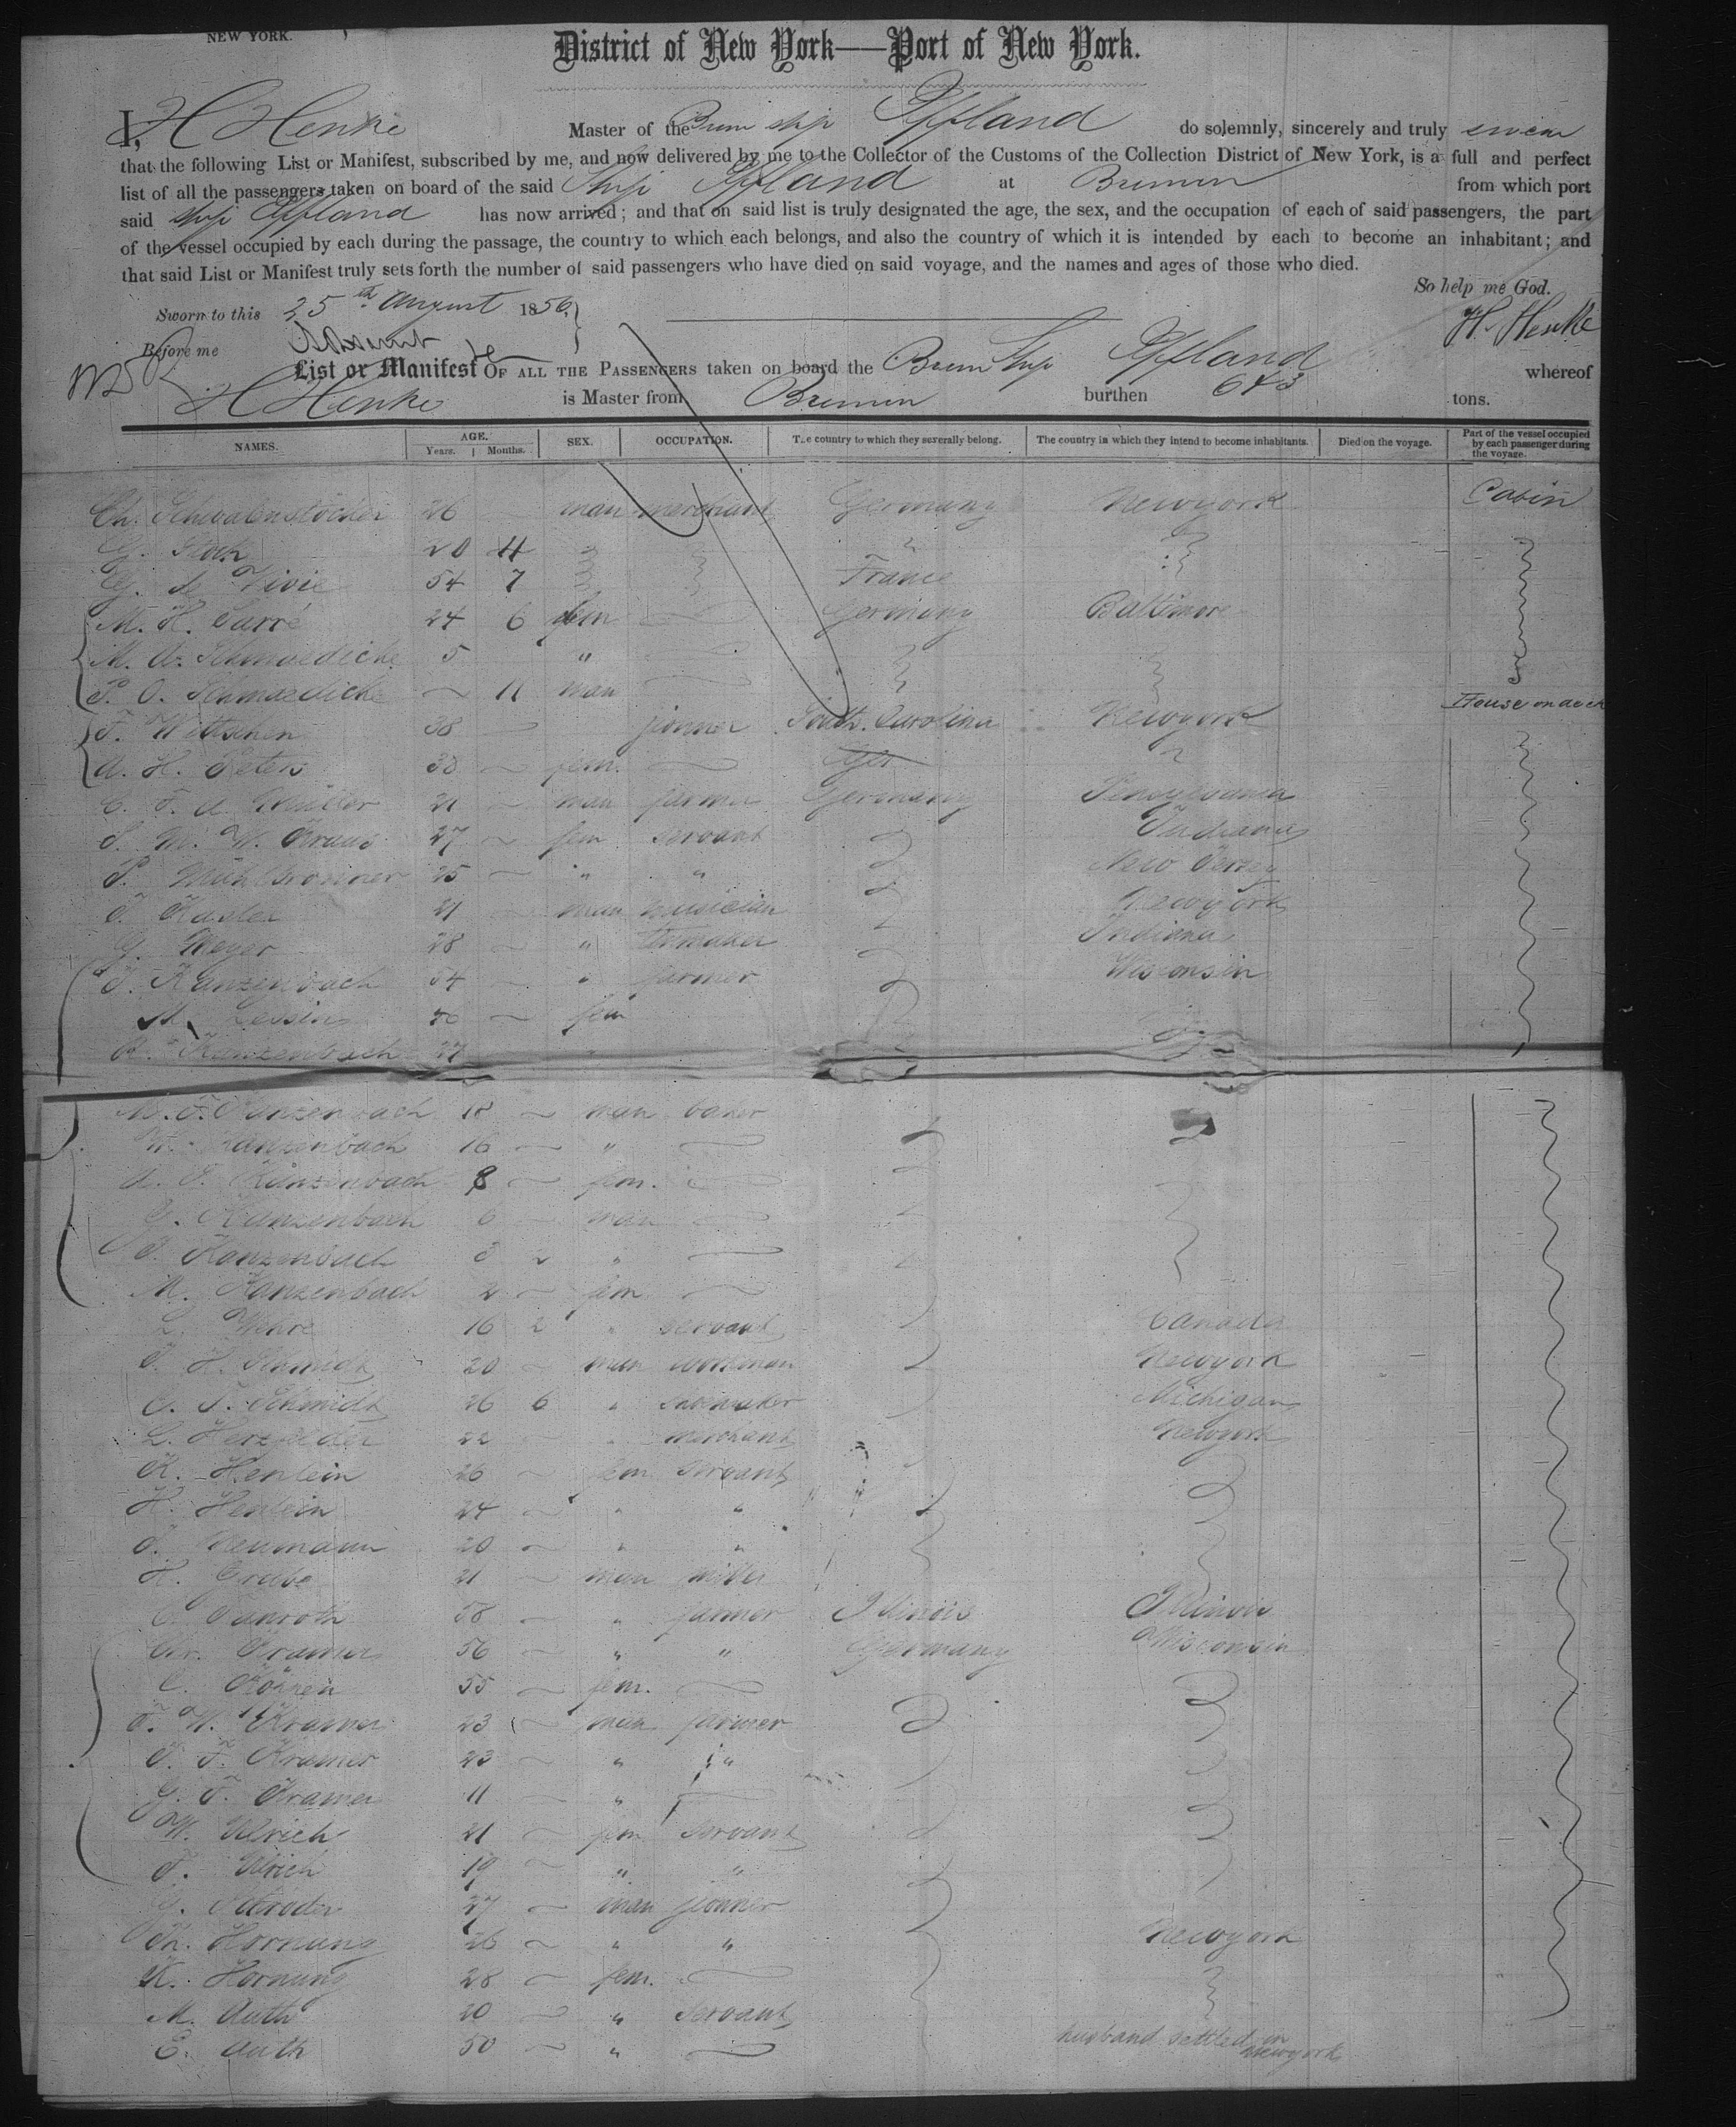 NEW YORK.
District of New York——Port of New York.
I, H Henke Master of the Brem ship Iffland do solemnly, sincerely and truly swear
that the following List or Manifest, subscribed by me, and now delivered by me to the Collector of the Customs of the Collection District of New York, is a full and perfect
list of all the passengers taken on board of the said Ship Iffland at Bremen from which port
said ship Iffland has now arrived; and that on said list is truly designated the age, the sex, and the occupation of each of said passengers, the part
of the vessel occupied by each during the passage, the country to which each belongs, and also the country of which it is intended by each to become an inhabitant; and
that said List or Manifest truly sets forth the number of said passengers who have died on said voyage, and the names and ages of those who died.
So help me God.
Sworn to this 25th August 1856
H. Henke
Before me
List or Manifest OF ALL THE PASSENGERS taken on board the Brem Ship Iffland whereof
H Henke is Master from Bremen burthen 643 tons.
NAMES. AGE. Years. Months. SEX. OCCUPATION. The country to which they severally belong. The country in which they intend to become inhabitants. Died on the voyage. Part of the vessel occupied by each passenger during the voyage.
Ch. Schwabenstöcker 26 man merchant Germany Newyork Cabin
G. Stock 20 4 "
G. de Vivie 54 7 France
M. H. Carré 24 6 fem Germany Baltimore
M. A. Schmaedicke 5 "
P. O. Schmaedicke 11 man
F. Wittschen 38 joiner South Carolina Newyork House on deck
A. H. Peters 38 fem. Ger
C. F. A Müller 21 man farmer Germany Pensylvania
S. M. W. Kraus 27 fem servant Indiana
P. Mühlbronner 25 " " New Yersey
F. Kasler 21 man musician Newyork
G. Meyer 28 " Indiana
J. Kanzenbach 54 " farmer Wisconsin
M. Lessin fem
Kanzenbach 27
M. F. Kanzenbach 18 man baker
W. Kanzenbach 16 "
A. F. Kanzenbach 8 fem.
G. Kanzenbach 6 man
F. Kanzenbach 3 "
M. Kanzenbach 2 fem
L. Wehre 16 2 " servant Canada
F. H. Schmidt 20 man workman Newyork
C. F. Schmidt 26 6 " shoemaker Michigan
L. Herzfelder 22 " merchant Newyork
K. Henlein 26 fem servant
H. Henlein 24 " "
F. Neumann 20 " "
H. Grebe 21 man miller
C. Tanroth 58 " farmer Illinois Illinois
Chr. Kramer 56 " " Germany Wisconsin
C. 55 fem.
F. W. Kramer 23 man farmer
F. F. Kramer 23 " "
G. F. Kramer 11 "
W. Ulrich 21 fem servant
F. Ulrich 19 " "
G. Schroder 27 man joiner
Th. Hornung 26 " " Newyork
K. Hornung 28 fem.
M. Auth 20 " servant
E. Auth 50 " husband settled in Newyork